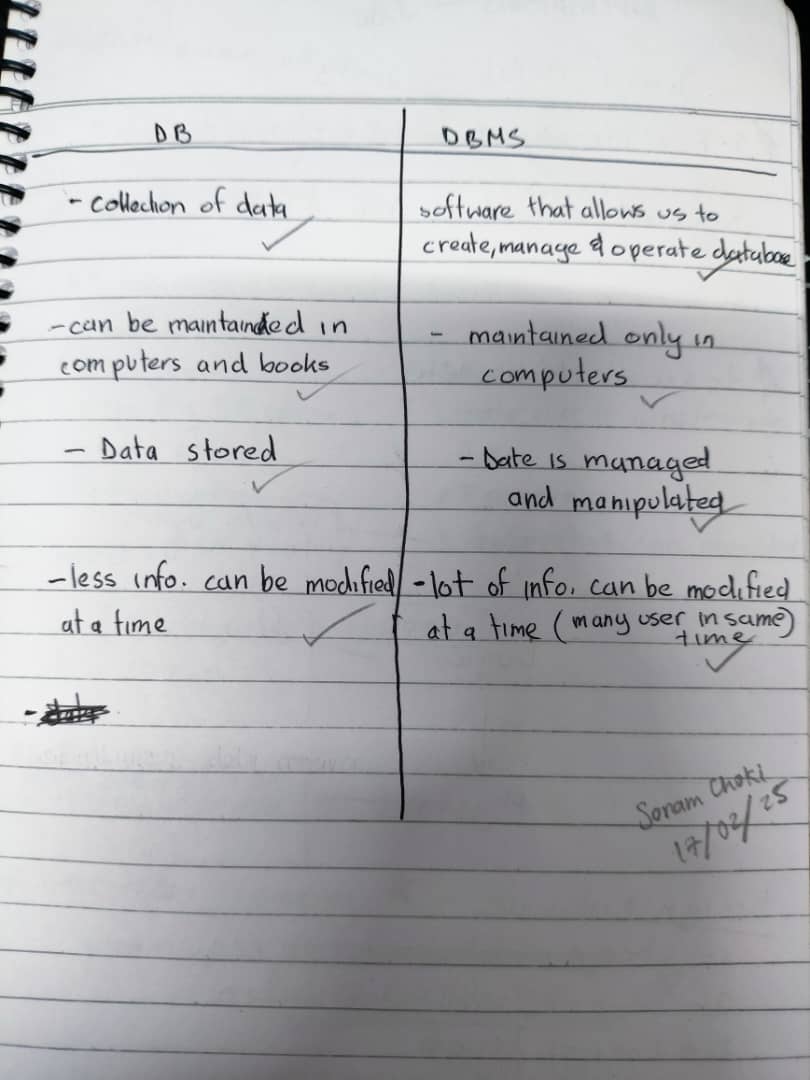 DB DBMS
- Collection of data
software that allows us to
create, manage & operate database
- can be maintainded in
computers and books
- maintained only in
computers
- Data stored
- Date is managed
and manipulated
- less info. can be modified
at a time
- lot of info. can be modified
at a time (many user in same)
time
Sonam Choki
17/02/25